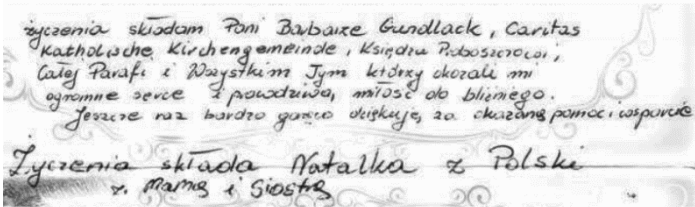 życzenia składam Pani Barbarze Gundlack, Caritas
Katholische Kirchengemeinde, Księdzu Proboszczowi,
Całej Parafi i Wszystkim Tym którzy okazali mi
ogromne serce i prawdziwą miłość do bliźniego.
Jeszcze raz bardzo gorąco dziękuję za okazaną pomoc i wsparcie
Życzenia składa Natalka z Polski
z Mamą i Siostrą